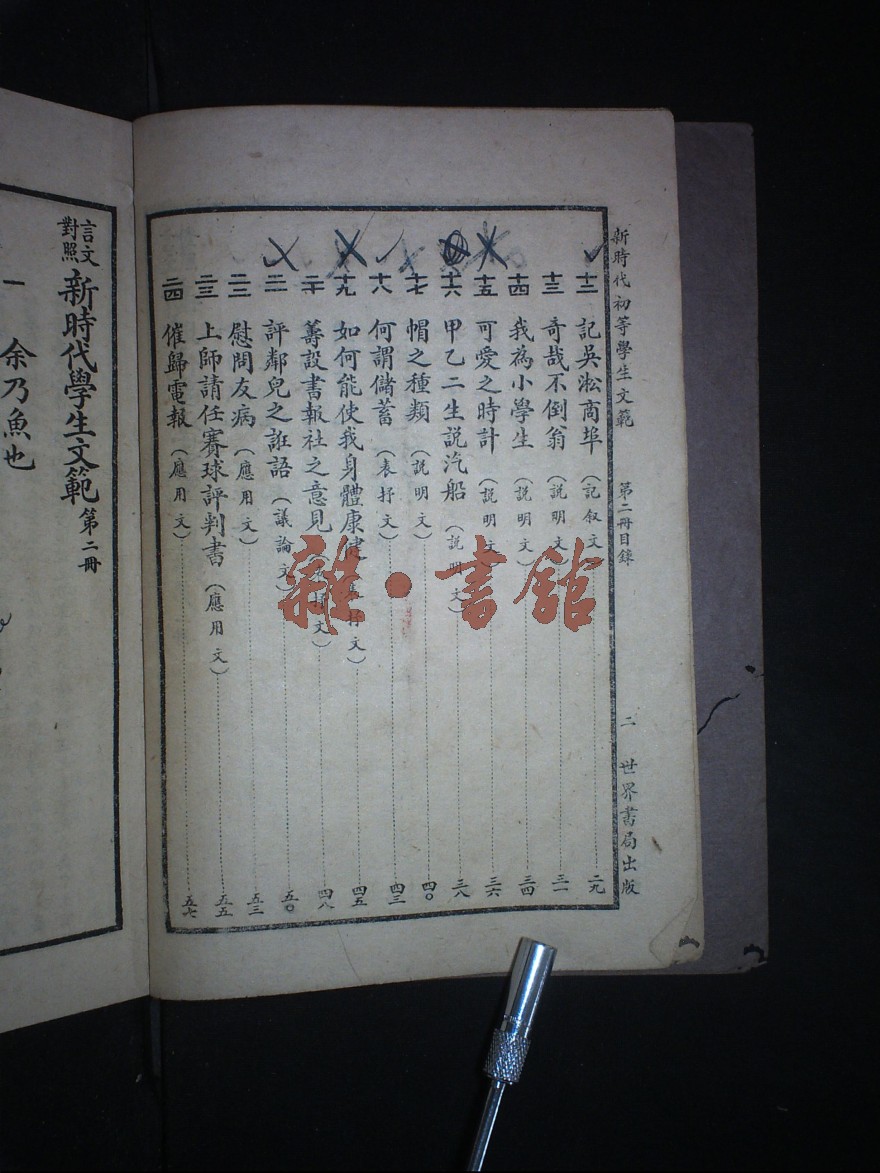 新時代初等學生文範 第二冊目錄 二 世界書局出版
十二 記吳淞商埠（記叙文）二九
十三 奇哉不倒翁（説明文）三一
十四 我為小學生（説明文）三四
十五 可愛之時計（説明文）三六
十六 甲乙二生説汽船（説明文）三八
十七 帽之種類（説明文）四〇
十八 何謂儲蓄（表抒文）四三
十九 如何能使我身體康健（表抒文）四五
二十 籌設書報社之意見（表抒文）四八
二一 評鄰兒之誑語（議論文）五〇
二二 慰問友病（應用文）五三
二三 上師請任賽球評判書（應用文）五五
二四 催歸電報（應用文）五七
雜·書館
言文對照 新時代學生文範 第二冊
一 余乃魚也